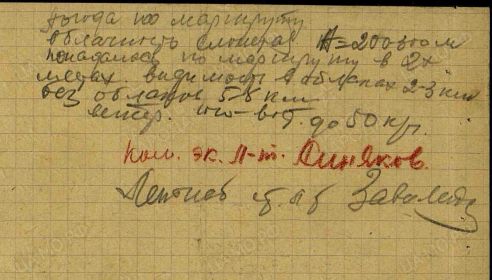 погода по маршруту
облачность слоистая Н=200-300 м
попадалась по маршруту в 2х
местах. видимость в облаках 2-3 км
без облаков 5-8 км
ветер. юго-вост. до 50 кр.
Ком. эк. Л-т. Синяков.